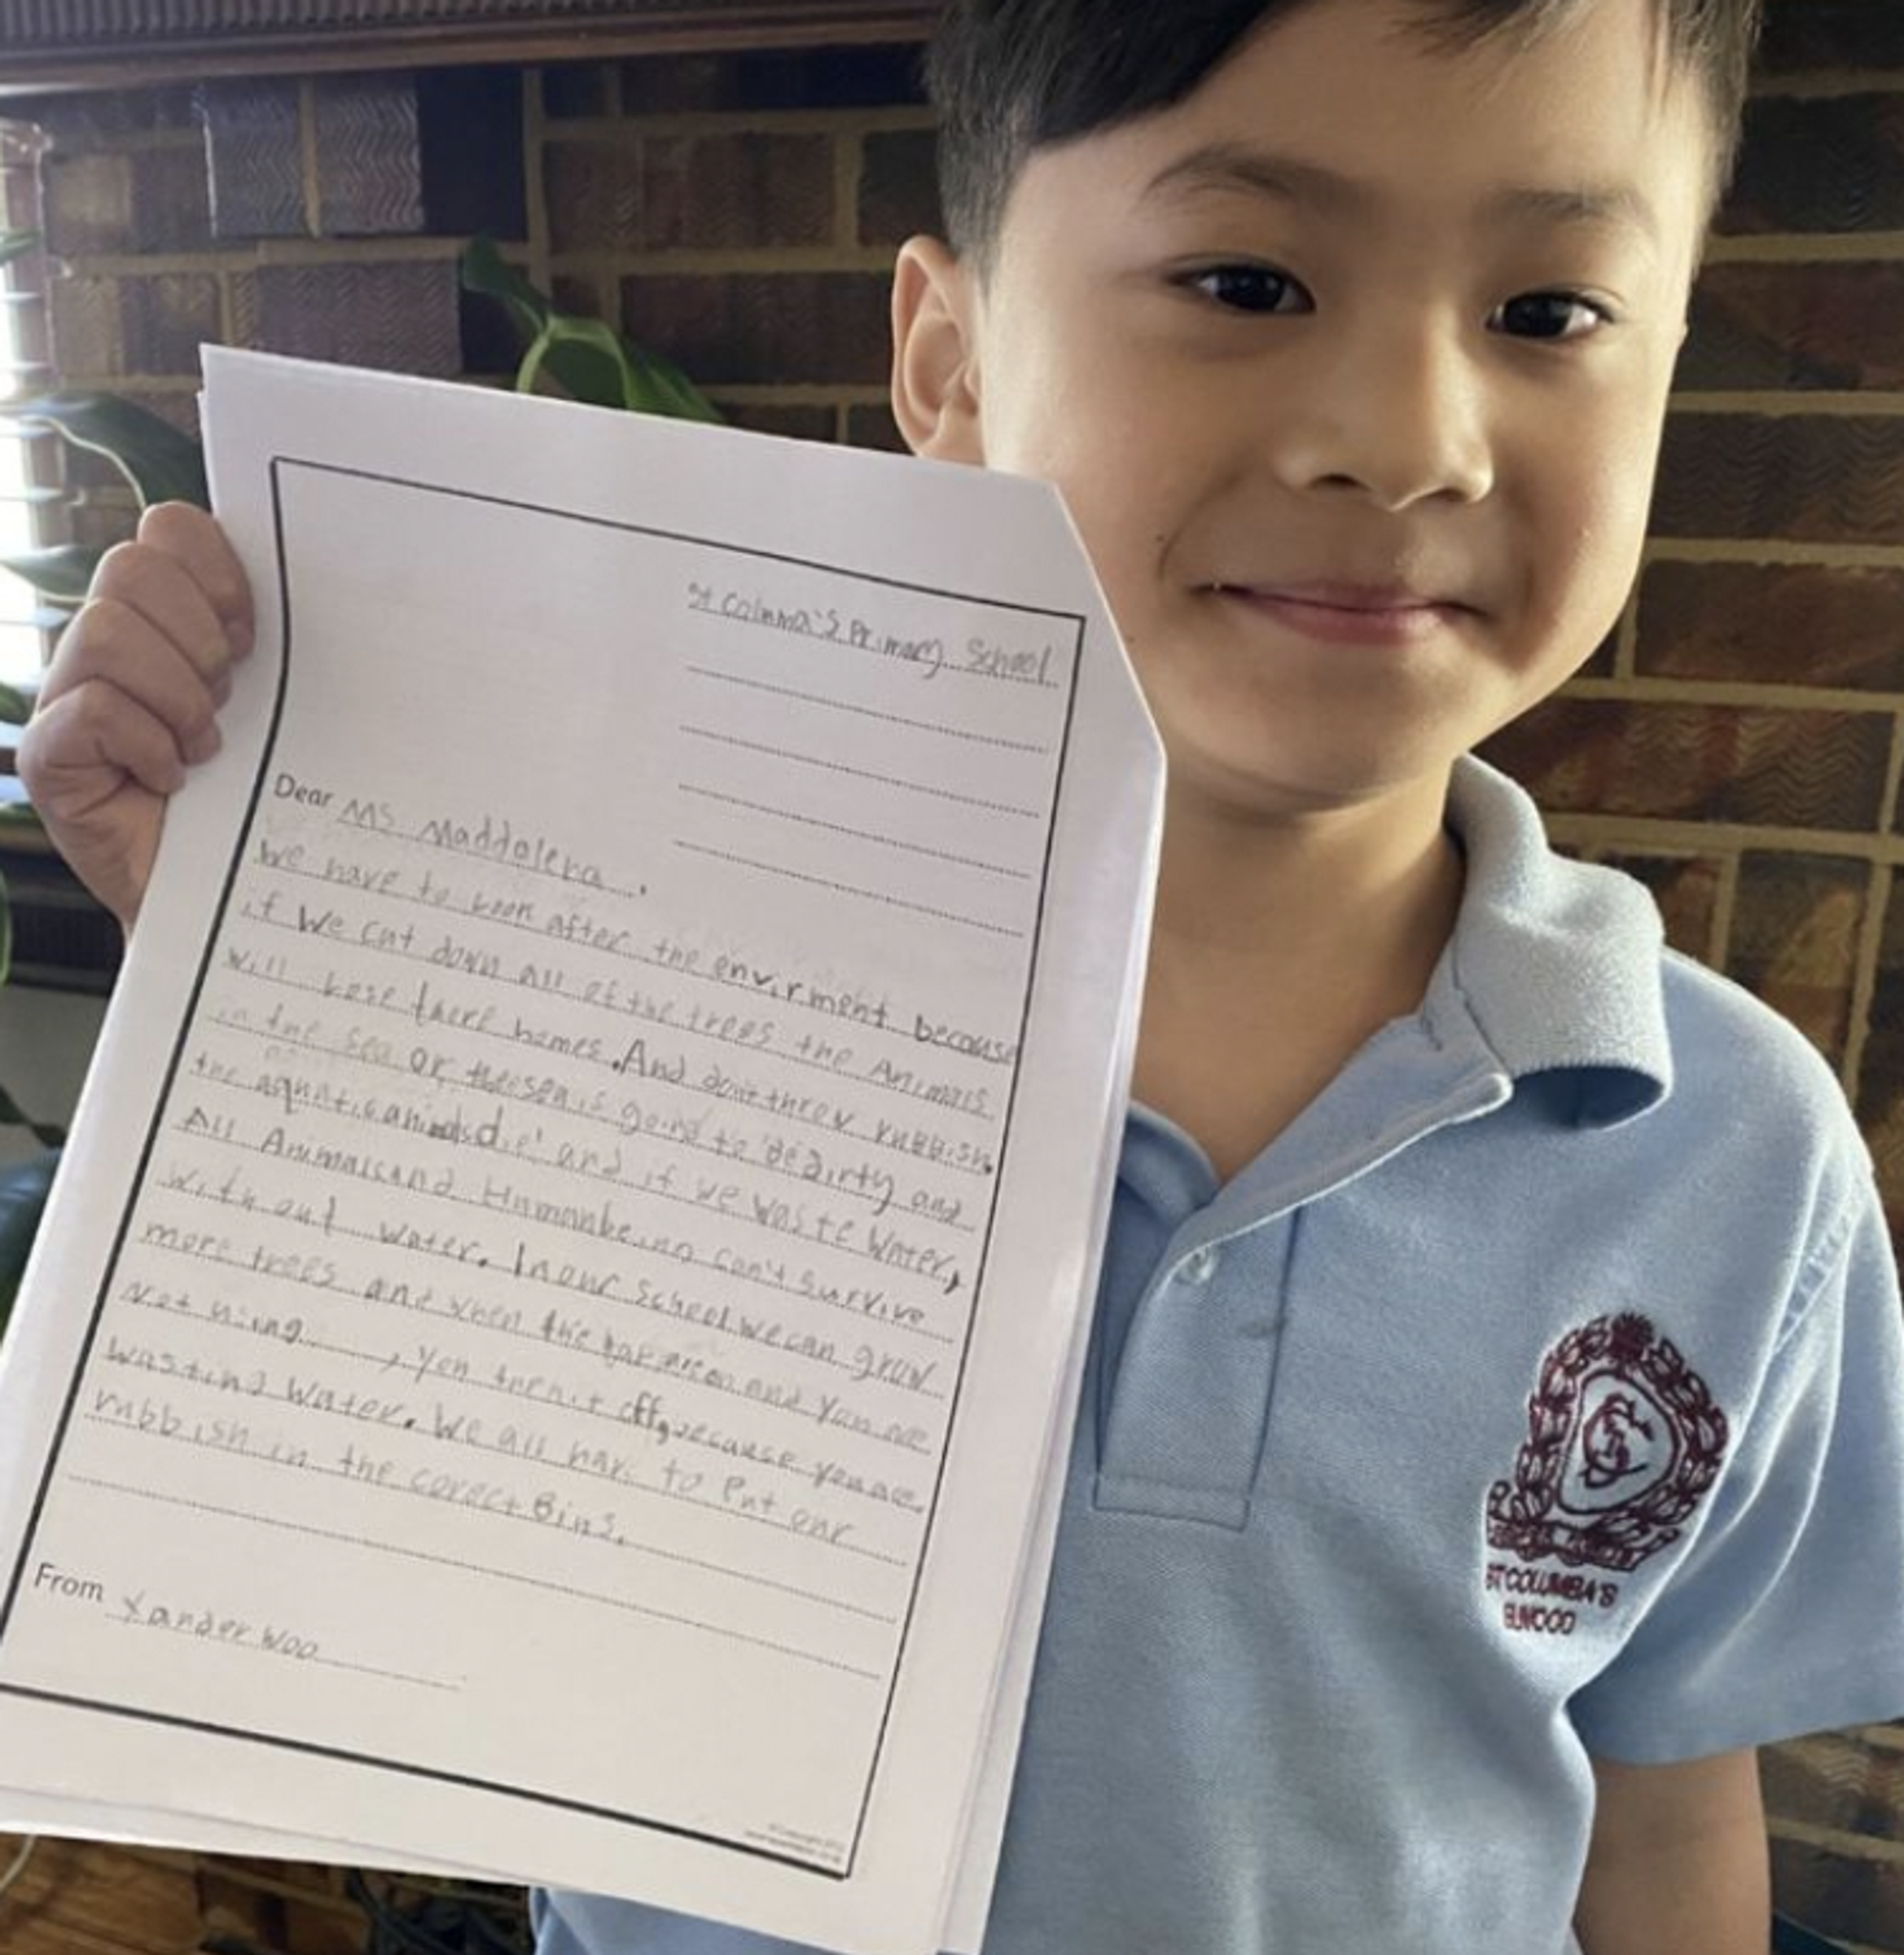 St Colmma's Primary School
Dear Ms Maddalena,
We have to look after the envirment because
if We cut down all of the trees the Animals
will lose there homes. And don't throw rubbish
in the sea or the sea is going to be dirty and
the aquatic animals die! and if we waste Water,
All Animals and Human being can't survive
with out water. In our School we can grow
more trees and when the tap are on and you are
Not using, you turn it off, because you are
wasting Water. We all have to Put our
rubbish in the corect Bins.
From Xander Woo
ST COLUMBA'S
ELWOOD